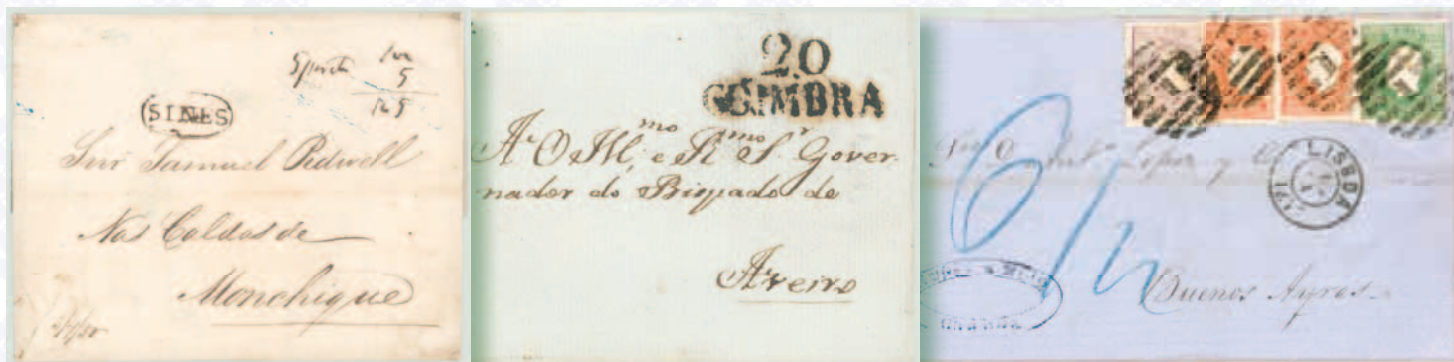 100
5
125
SINES
Snr Samuel Pidwell
Nas Caldas de
Monchique
20
COIMBRA
Ao Il.mo e R.mo Sr Gover-
nador do Bispado de
Aveiro
1
1
1
1
Lopez y
LISBOA
6/4
Buenos Ayres